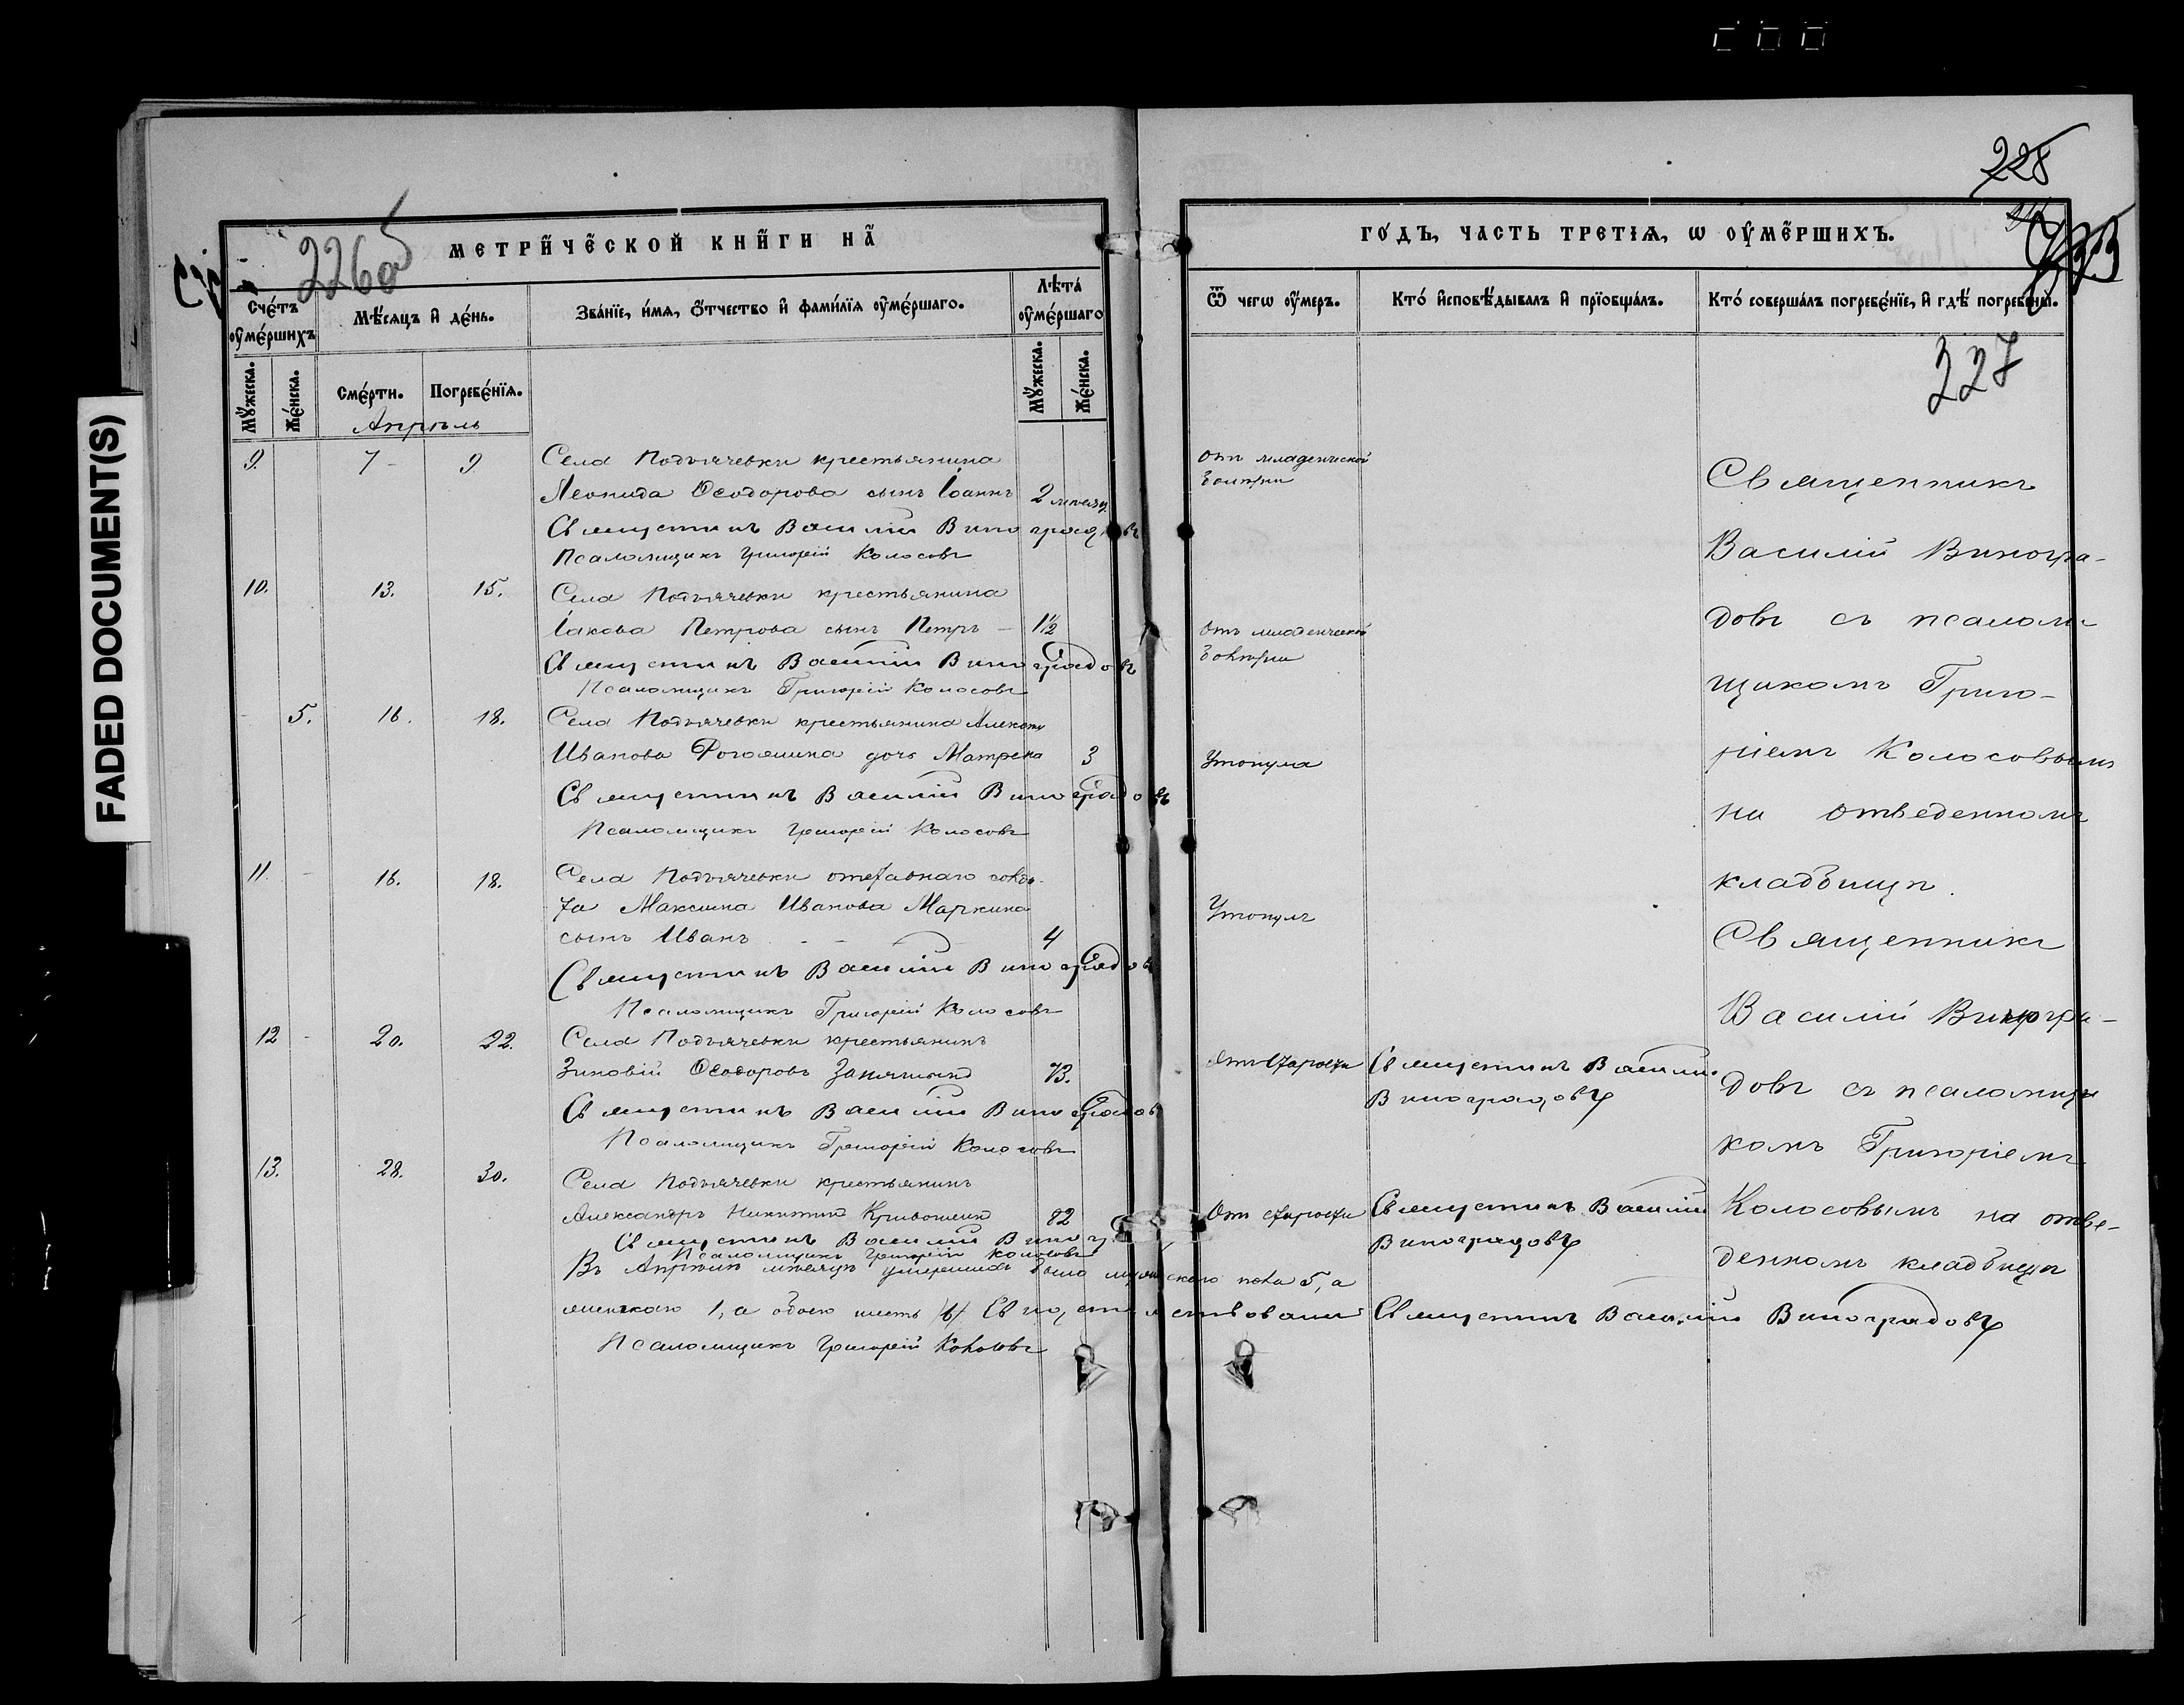 FADED DOCUMENT(S)
226об
МЕТРИЧЕСКОЙ КНИГИ НА
Счетъ умершихъ
Мѣсяцъ и день.
Званіе, имя, отчество и фамилія умершаго.
Лѣта умершаго
Мужеска.
Женска.
Смерти.
Погребенія.
Мужеска.
Женска.
Апрѣль
9. 7 9. Села Подъячевки крестьянина
Леонида Ѳеодорова сынъ Іоаннъ 2 мѣсяц.
Священникъ Василій Виноградовъ
Псаломщикъ Григорій Колосовъ
10. 13. 15. Села Подъячевки крестьянина
Іакова Петрова сынъ Петръ – 1½
Священникъ Василій Виноградовъ
Псаломщикъ Григорій Колосовъ
5. 16. 18. Села Подъячевки крестьянина
Иванова дочь Матрена 3
Священникъ Василій Виноградовъ
Псаломщикъ Григорій Колосовъ
11. 16. 18. Села Подъячевки отставнаго солда-
та Максима Иванова Маркина
сынъ Иванъ 4
Священникъ Василій Виноградовъ
Псаломщикъ Григорій Колосовъ
12 20. 22. Села Подъячевки крестьянинъ
Зиновій Ѳеодоровъ 73.
Священникъ Василій Виноградовъ
Псаломщикъ Григорій Колосовъ
13. 28. 30. Села Подъячевки крестьянинъ
Александръ Никитинъ 82
Священникъ Василій Виногр.
Псаломщикъ Григорій Колосовъ
Въ Апрѣлѣ мѣсяцѣ умершихъ было мужескаго пола 5, а
женскаго 1, а обоего шесть (6) Свидѣтельствовали: Священникъ Василій Виноградовъ
Псаломщикъ Григорій Колосовъ
228
ГОДЪ, ЧАСТЬ ТРЕТІЯ, Ѡ УМЕРШИХЪ.
Ѿ чегѡ умеръ.
Кто исповѣдывалъ и пріобщалъ.
Кто совершалъ погребеніе, и гдѣ погребены.
227
отъ младенческой
болѣзни
отъ младенческой
болѣзни
Утонула
Утонулъ
Отъ старости
Священникъ Василій
Виноградовъ
Отъ старости
Священникъ Василій
Виноградовъ
Священникъ
Василій Виногра-
довъ съ псалом-
щикомъ Григо-
ріемъ Колосовымъ
на отведенномъ
кладбищѣ.
Священникъ
Василій Виногра-
довъ съ псаломщи
комъ Григоріемъ
Колосовымъ на отве-
денномъ кладбищѣ